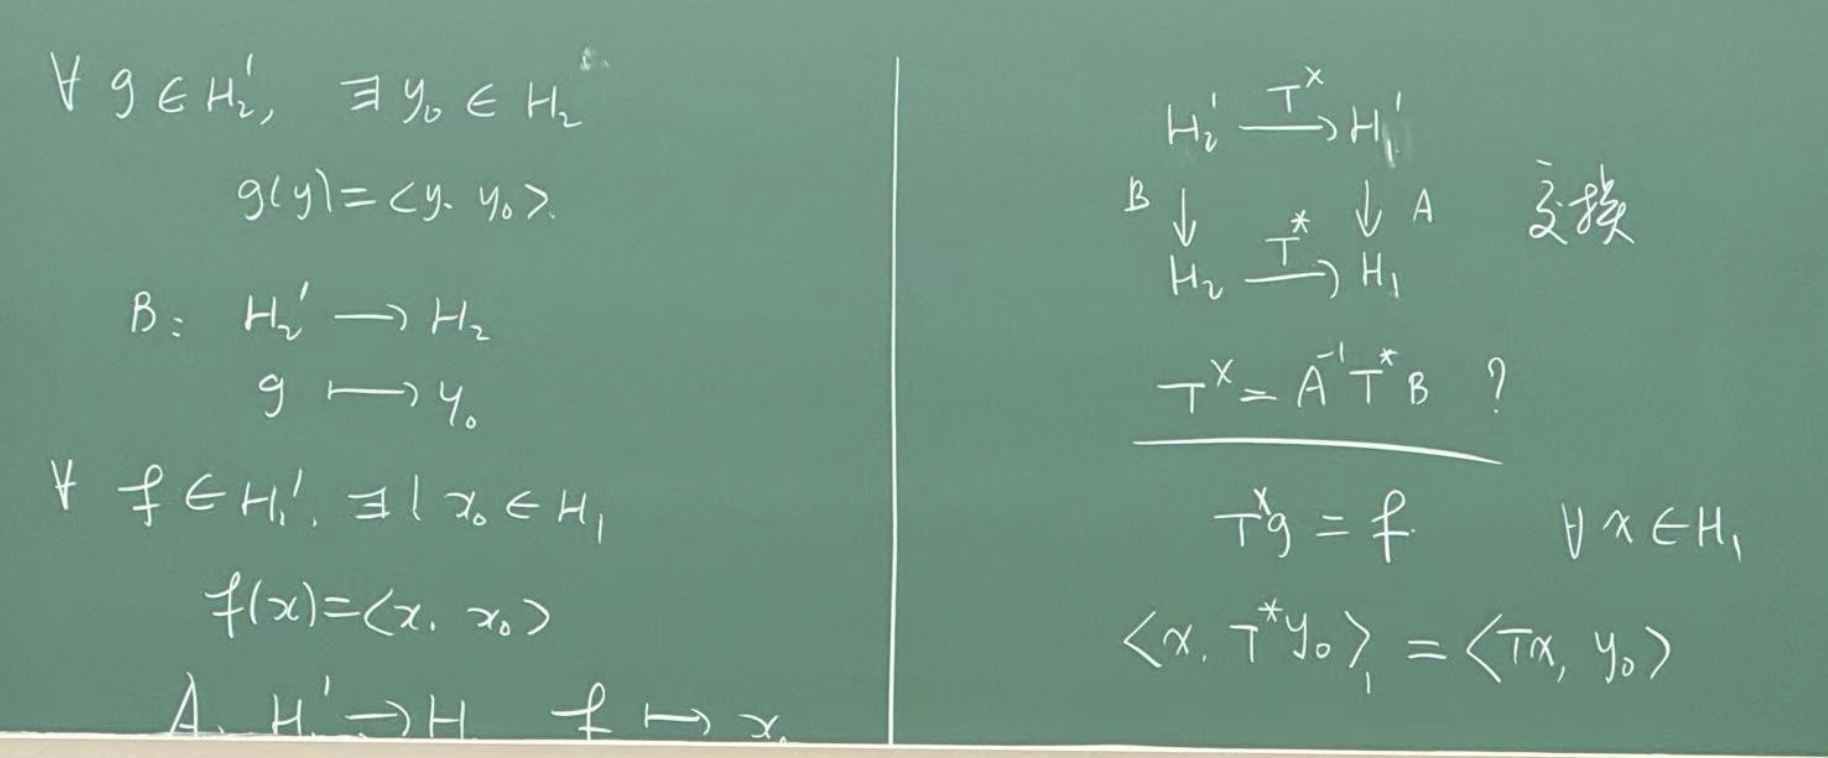 ∀ g ∈ H₂', ∃ y₀ ∈ H₂
g(y) = <y. y₀>.
B: H₂' → H₂
g ⟼ y₀
∀ f ∈ H₁'. ∃! x₀ ∈ H₁
f(x) = <x. x₀>
A. H₁' → H f ↦ x₀
H₂' —T^×→ H₁'
B ↓ ↓ A 交换
H₂ —T^*→ H₁
T^× = A⁻¹ T^* B ?
T^× g = f. ∀ x ∈ H₁
<x. T^* y₀>₁ = <Tx, y₀>